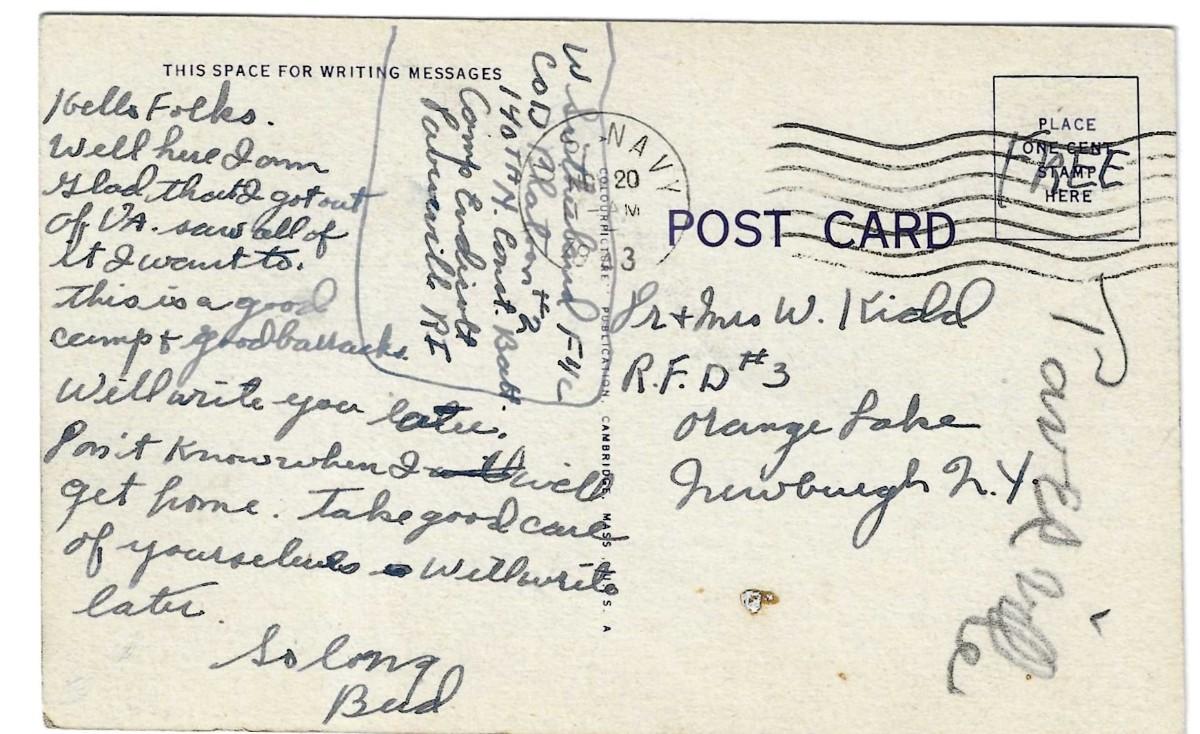 THIS SPACE FOR WRITING MESSAGES
Hello Folks.
Well here I am
Glad that I got out
of VA. saw all of
it I want to.
this is a good
camp & good barracks.
Will write you later.
Don't Know when I will
get home. Take good care
of yourselves Will write
later
So long
Bud
Co D Platoon #2
140TH N. Const. Batt.
Camp Endicott
RI
NAVY
20
AM
3
COLOURPICTURE PUBLICATION CAMBRIDGE, MASS. U. S. A
POST CARD
PLACE
ONE CENT
STAMP
HERE
FREE
Mr & Mrs W. Kidd
R.F.D #3
Orange Lake
Newburgh N.Y.